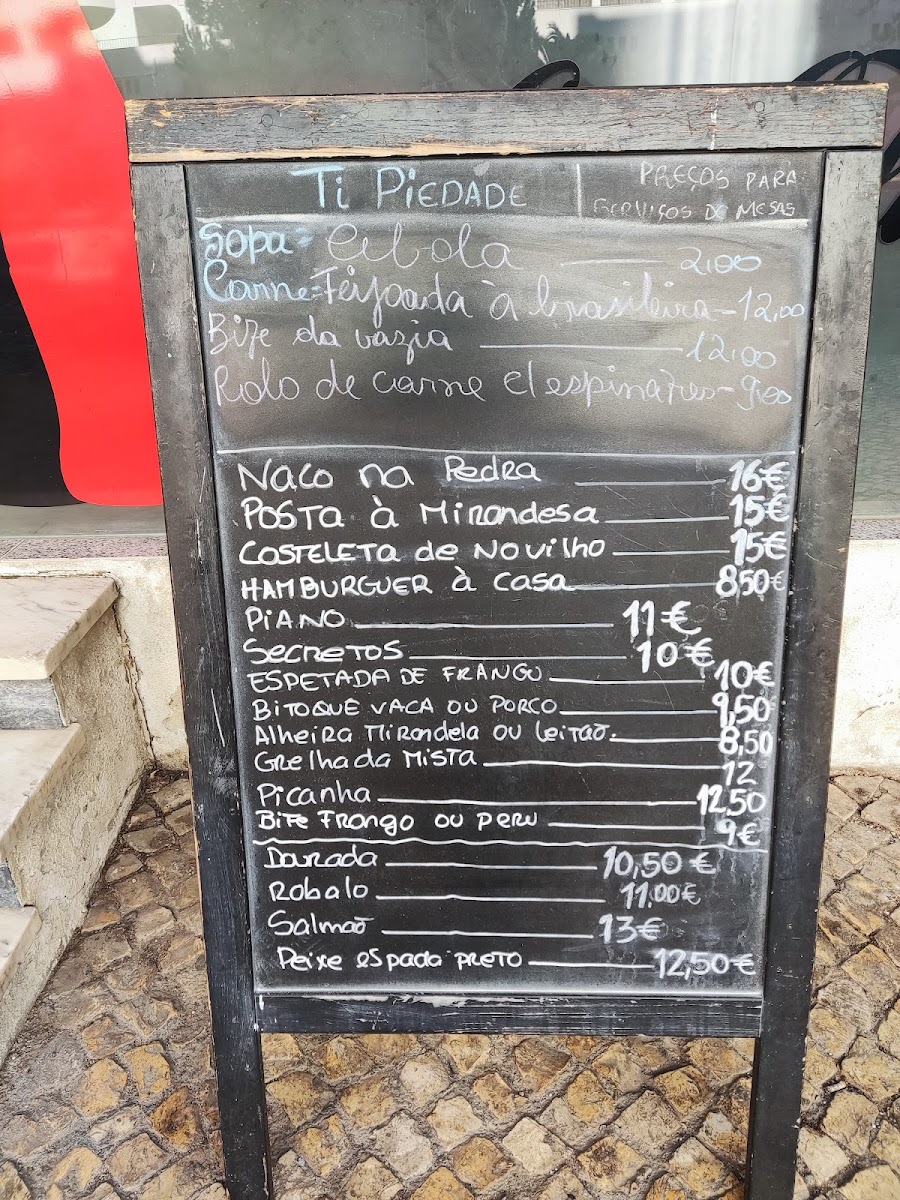 Ti Piedade
PREÇOS PARA
SERVIÇOS DE MESAS
Sopa = Cebola — 2,00
Carne = Feijoada à brasileira - 12,00
Bife da vazia — 12,00
Rolo de carne c/ espinafres - 9,00
Naco na Pedra — 16€
Posta à Mirandesa — 15€
Costeleta de Novilho — 15€
Hamburguer à Casa — 8,50€
Piano — 11€
Secretos — 10€
Espetada de Frango — 10€
Bitoque Vaca ou Porco — 9,50
Alheira Mirandela ou Leitão. — 8,50
Grelhada Mista — 12
Picanha — 12,50
Bife Frango ou Peru — 9€
Dourada — 10,50€
Robalo — 11,00€
Salmão — 13€
Peixe espada preto — 12,50€